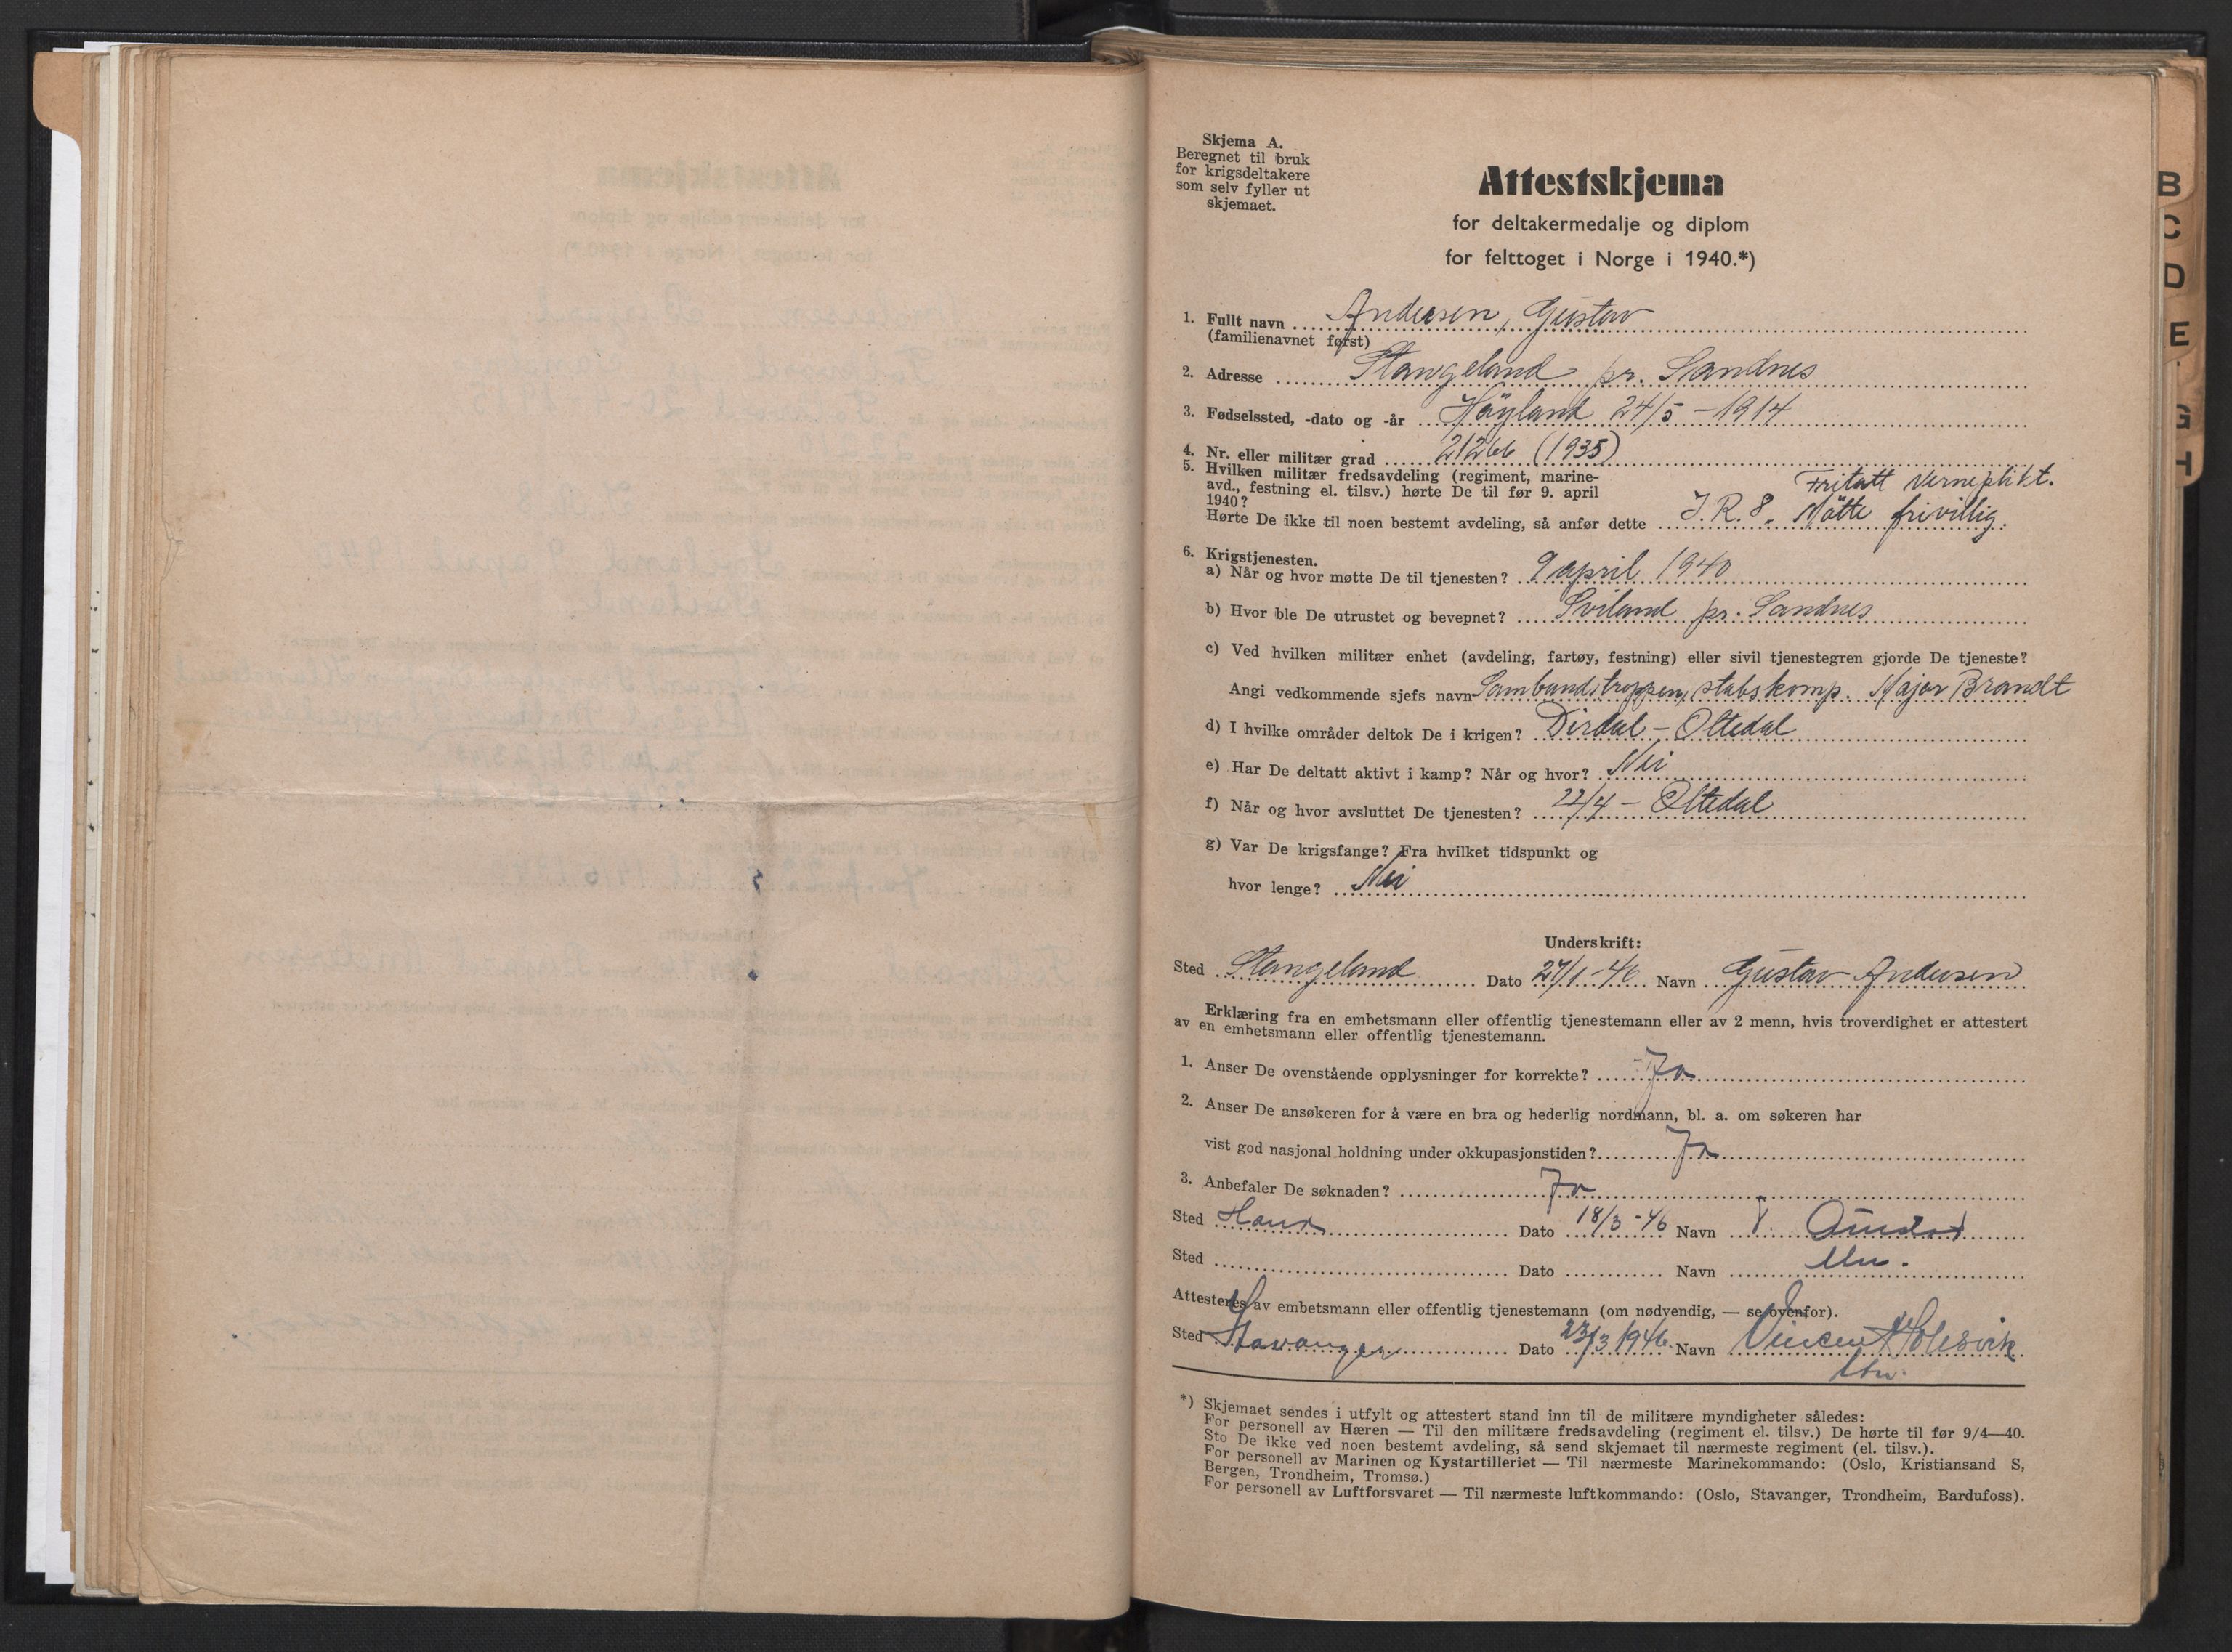 Skjema A.
Beregnet til bruk
for krigsdeltakere
som selv fyller ut
skjemaet.
Attestskjema
for deltakermedalje og diplom
for felttoget i Norge i 1940.*)
1. Fullt navn Andersen, Gustav
(familienavnet først)
2. Adresse Stangeland pr. Sandnes
3. Fødselssted, -dato og -år Høyland 24/5 - 1914
4. Nr. eller militær grad 21266 (1935)
5. Hvilken militær fredsavdeling (regiment, marine-
avd., festning el. tilsv.) hørte De til før 9. april
1940? Fritatt verneplikt.
Hørte De ikke til noen bestemt avdeling, så anfør dette J.R.8. Mötte frivillig.
6. Krigstjenesten.
a) Når og hvor møtte De til tjenesten? 9 april 1940
b) Hvor ble De utrustet og bevepnet? Sviland pr. Sandnes
c) Ved hvilken militær enhet (avdeling, fartøy, festning) eller sivil tjenestegren gjorde De tjeneste?
Angi vedkommende sjefs navn Sambandstroppen, stabskomp. Major Brandt
d) I hvilke områder deltok De i krigen? Dirdal - Oltedal
e) Har De deltatt aktivt i kamp? Når og hvor? Nei
f) Når og hvor avsluttet De tjenesten? 22/4 - Oltedal
g) Var De krigsfange? Fra hvilket tidspunkt og
hvor lenge? Nei
Underskrift:
Sted Stangeland Dato 27/1-46 Navn Gustav Andersen
Erklæring fra en embetsmann eller offentlig tjenestemann eller av 2 menn, hvis troverdighet er attestert
av en embetsmann eller offentlig tjenestemann.
1. Anser De ovenstående opplysninger for korrekte? Ja
2. Anser De ansøkeren for å være en bra og hederlig nordmann, bl. a. om søkeren har
vist god nasjonal holdning under okkupasjonstiden? Ja
3. Anbefaler De søknaden? Ja
Sted Dato 18/3-46 Navn
Sted Dato Navn
Attesteres av embetsmann eller offentlig tjenestemann (om nødvendig, — se ovenfor).
Sted Stavanger Dato 23/3 1946. Navn
*) Skjemaet sendes i utfylt og attestert stand inn til de militære myndigheter således:
For personell av Hæren — Til den militære fredsavdeling (regiment el. tilsv.) De hørte til før 9/4—40.
Sto De ikke ved noen bestemt avdeling, så send skjemaet til nærmeste regiment (el. tilsv.).
For personell av Marinen og Kystartilleriet — Til nærmeste Marinekommando: (Oslo, Kristiansand S,
Bergen, Trondheim, Tromsø.)
For personell av Luftforsvaret — Til nærmeste luftkommando: (Oslo, Stavanger, Trondheim, Bardufoss).
B
C
D
E
G
H